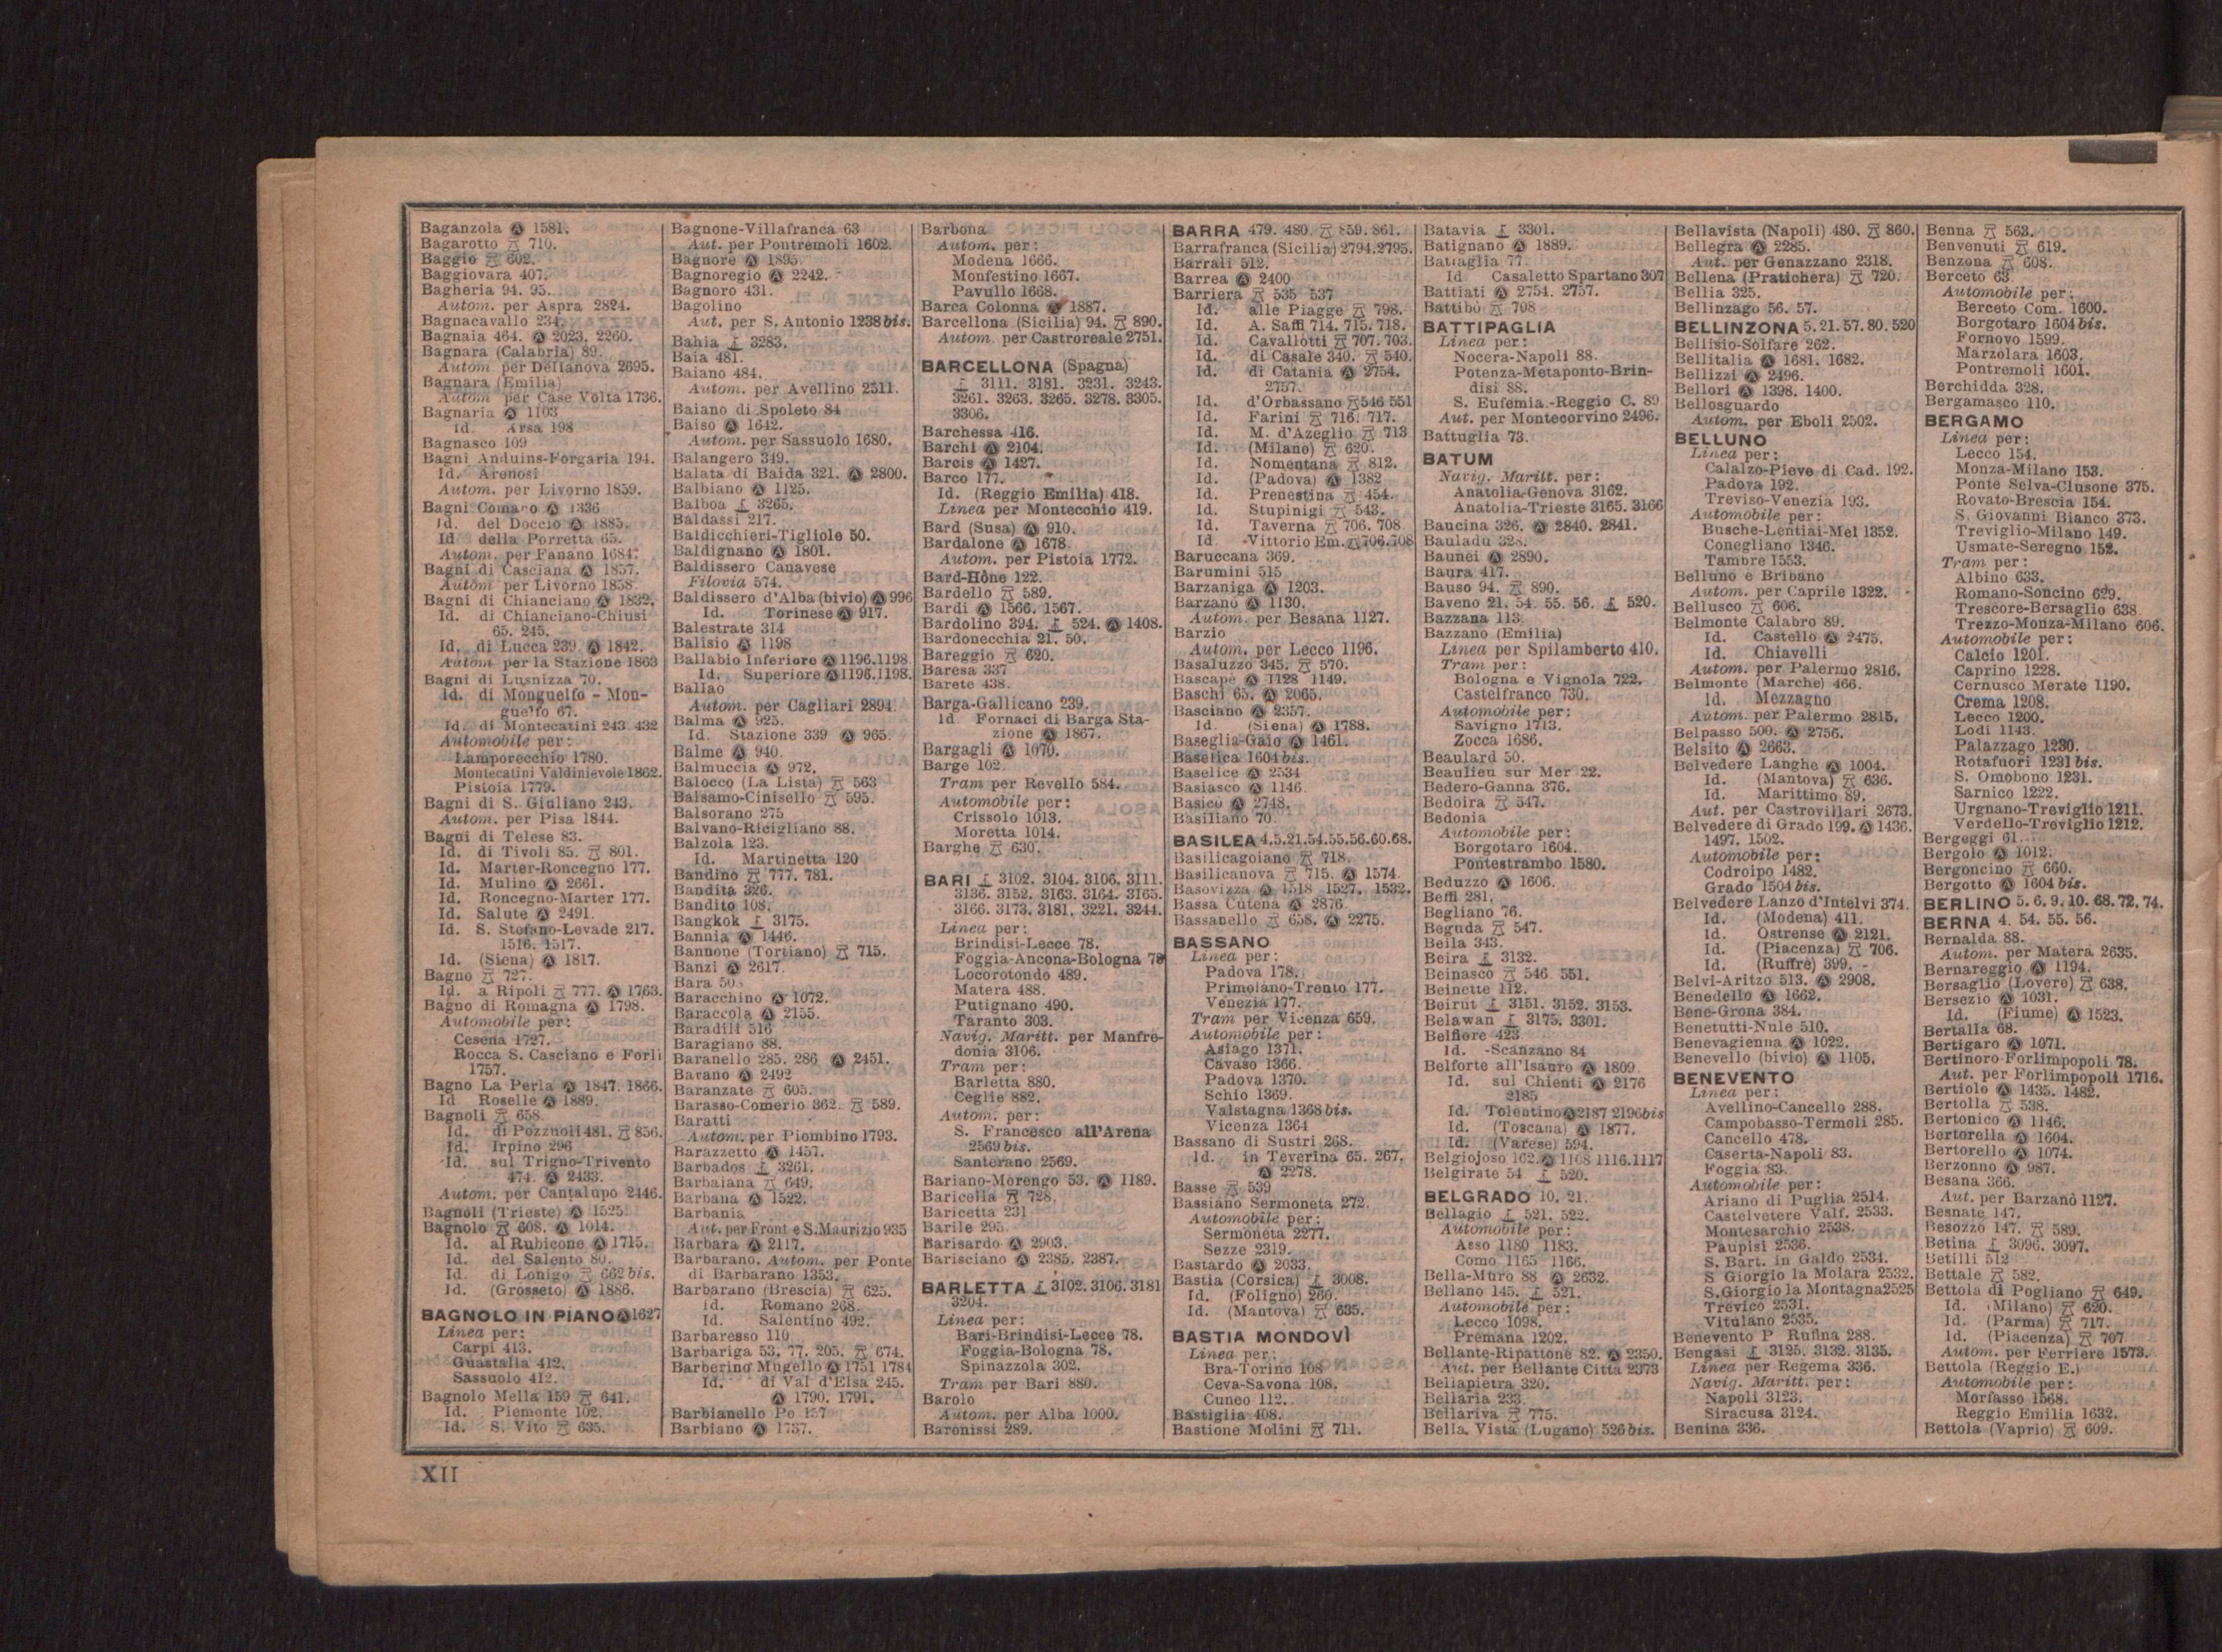 Baganzola Ⓐ 1581.
Bagarotto 710.
Baggio 602.
Baggiovara 407.
Bagheria 94. 95.
Autom. per Aspra 2824.
Bagnacavallo 234.
Bagnaia 464. Ⓐ 2023. 2260.
Bagnara (Calabria) 89.
Autom per Delianova 2695.
Bagnara (Emilia)
Autom per Case Volta 1736.
Bagnaria Ⓐ 1103
Id. Arsa 198
Bagnasco 109
Bagni Anduins-Forgaria 194.
Id. Arenosi
Autom. per Livorno 1859.
Bagni Comano Ⓐ 1336
Id. del Doccio Ⓐ 1885.
Id della Porretta 65.
Autom. per Fanano 1684.
Bagni di Casciana Ⓐ 1857.
Autom per Livorno 1858.
Bagni di Chianciano Ⓐ 1832.
Id. di Chianciano-Chiusi
65. 245.
Id. di Lucca 239. Ⓐ 1842.
Autom per la Stazione 1863
Bagni di Lusnizza 70.
Id. di Monguelfo - Mon-
guelfo 67.
Id. di Montecatini 243 432
Automobile per:
Lamporecchio 1780.
Montecatini Valdinievole 1862.
Pistoia 1779.
Bagni di S. Giuliano 243.
Autom. per Pisa 1844.
Bagni di Telese 83.
Id. di Tivoli 85. 801.
Id. Marter-Roncegno 177.
Id. Mulino Ⓐ 2661.
Id. Roncegno-Marter 177.
Id. Salute Ⓐ 2491.
Id. S. Stefano-Levade 217.
1516. 1517.
Id. (Siena) Ⓐ 1817.
Bagno 727.
Id. a Ripoli 777. Ⓐ 1763.
Bagno di Romagna Ⓐ 1798.
Automobile per:
Cesena 1727.
Rocca S. Casciano e Forlì
1757.
Bagno La Perla Ⓐ 1847. 1866.
Id Roselle Ⓐ 1889.
Bagnoli 658
Id. di Pozzuoli 481. 856.
Id. Irpino 296
Id. sul Trigno-Trivento
474. Ⓐ 2433.
Autom. per Cantalupo 2446.
Bagnoli (Trieste) Ⓐ 1525
Bagnolo 608. Ⓐ 1014.
Id. al Rubicone Ⓐ 1715.
Id. del Salento 80.
Id. di Lonigo 662 bis.
Id. (Grosseto) Ⓐ 1886.
BAGNOLO IN PIANO Ⓐ 1627
Linea per:
Carpi 413.
Guastalla 412.
Sassuolo 412.
Bagnolo Mella 159 641.
Id. Piemonte 102.
Id. S. Vito 635.
Bagnone-Villafranca 63
Aut. per Pontremoli 1602.
Bagnore Ⓐ 1895.
Bagnoregio Ⓐ 2242.
Bagnoro 431.
Bagolino
Aut. per S. Antonio 1238 bis.
Bahia 3283.
Baia 481.
Baiano 484.
Autom. per Avellino 2511.
Baiano di Spoleto 84
Baiso Ⓐ 1642.
Autom. per Sassuolo 1680.
Balangero 349.
Balata di Baida 321. Ⓐ 2800.
Balbiano Ⓐ 1125.
Balboa 3265.
Baldassi 217.
Baldicchieri-Tigliole 50.
Baldignano Ⓐ 1801.
Baldissero Canavese
Filovia 574.
Baldissero d'Alba (bivio) Ⓐ 996
Id. Torinese Ⓐ 917.
Balestrate 314
Balisio Ⓐ 1198
Ballabio Inferiore Ⓐ 1196.1198
Id. Superiore Ⓐ 1196.1198.
Ballao
Autom. per Cagliari 2894.
Balma Ⓐ 925.
Id. Stazione 339 Ⓐ 965.
Balme Ⓐ 940.
Balmuccia Ⓐ 972.
Balocco (La Lista) 563
Balsamo-Cinisello 595.
Balsorano 275
Balvano-Ricigliano 88.
Balzola 123.
Id. Martinetta 120
Bandino 777. 781.
Bandita 326.
Bandito 108.
Bangkok 3175.
Bannia Ⓐ 1446.
Bannone (Tortiano) 715.
Banzi Ⓐ 2617.
Bara 50
Baracchino Ⓐ 1072.
Baraccola Ⓐ 2155.
Baradili 516
Baragiano 88.
Baranello 285. 286 Ⓐ 2451.
Barano Ⓐ 2492
Baranzate 605.
Barasso-Comerio 362. 589.
Baratti
Autom. per Piombino 1793.
Barazzetto Ⓐ 1457.
Barbados 3261.
Barbaiana 649.
Barbana Ⓐ 1522.
Barbania
Aut. per Front e S. Maurizio 935
Barbara Ⓐ 2117.
Barbarano. Autom. per Ponte
di Barbarano 1353.
Barbarano (Brescia) 625.
id. Romano 268.
Id. Salentino 492.
Barbaresso 110
Barbariga 53. 77. 205. 674.
Barberino Mugello Ⓐ 1751 1784
Id. di Val d'Elsa 245.
Ⓐ 1790. 1791.
Barbianello Po 157
Barbiano Ⓐ 1757.
Barbona
Autom. per:
Modena 1666.
Monfestino 1667.
Pavullo 1668.
Barca Colonna Ⓐ 1887.
Barcellona (Sicilia) 94. 890.
Autom. per Castroreale 2751.
BARCELLONA (Spagna)
3111. 3181. 3231. 3243.
3261. 3263. 3265. 3278. 3305.
3306.
Barchessa 416.
Barchi Ⓐ 2104.
Barcis Ⓐ 1427.
Barco 177.
Id. (Reggio Emilia) 418.
Linea per Montecchio 419.
Bard (Susa) Ⓐ 910.
Bardalone Ⓐ 1678
Autom. per Pistoia 1772.
Bard-Hône 122.
Bardello 589.
Bardi Ⓐ 1566. 1567.
Bardolino 394. 524. Ⓐ 1408.
Bardonecchia 21. 50.
Bareggio 620.
Baresa 337
Barete 438.
Barga-Gallicano 239.
Id Fornaci di Barga Sta-
zione Ⓐ 1867.
Bargagli Ⓐ 1070.
Barge 102.
Tram per Revello 584.
Automobile per:
Crissolo 1013.
Moretta 1014.
Barghe 630.
BARI 3102. 3104. 3106. 3111.
3136. 3152. 3163. 3164. 3165.
3166. 3173. 3181. 3221. 3244.
Linea per:
Brindisi-Lecce 78.
Foggia-Ancona-Bologna 78
Locorotondo 489.
Matera 488.
Putignano 490.
Taranto 303.
Navig. Maritt. per Manfre-
donia 3106.
Tram per:
Barletta 880.
Ceglie 882.
Autom. per:
S. Francesco all'Arena
2569 bis.
Santerano 2569.
Bariano-Morengo 53. Ⓐ 1189.
Baricella 728.
Baricetta 231
Barile 295.
Barisardo Ⓐ 2903.
Barisciano Ⓐ 2385. 2387.
BARLETTA 3102. 3106. 3181
3204.
Linea per:
Bari-Brindisi-Lecce 78.
Foggia-Bologna 78.
Spinazzola 302.
Tram per Bari 880.
Barolo
Autom. per Alba 1000.
Baronissi 289.
BARRA 479. 480. 859. 861.
Barrafranca (Sicilia) 2794.2795.
Barrali 512.
Barrea Ⓐ 2400
Barriera 535 537
Id. alle Piagge 798.
Id. A. Saffi 714. 715. 718.
Id. Cavallotti 707. 703.
Id. di Casale 340. 540.
Id. di Catania Ⓐ 2754.
2757.
Id. d'Orbassano 546 551
Id. Farini 716. 717.
Id. M. d'Azeglio 713
Id. (Milano) 620.
Id. Nomentana 812.
Id. (Padova) Ⓐ 1382
Id. Prenestina 454.
Id. Stupinigi 543.
Id. Taverna 706. 708
Id Vittorio Em. 706.708
Baruccana 369.
Barumini 515
Barzaniga Ⓐ 1203.
Barzanò Ⓐ 1130.
Autom. per Besana 1127.
Barzio
Autom. per Lecco 1196.
Basaluzzo 345. 570.
Bascapè Ⓐ 1128 1149.
Baschi 65. Ⓐ 2065.
Basciano Ⓐ 2357.
Id. (Siena) Ⓐ 1788.
Baseglia-Gaio Ⓐ 1461.
Baselica 1604 bis.
Baselice Ⓐ 2534
Basiasco Ⓐ 1146
Basicò Ⓐ 2748.
Basiliano 70
BASILEA 4.5.21.54.55.56.60.68.
Basilicagoiano 718.
Basilicanova 715. Ⓐ 1574.
Basovizza Ⓐ 1518 1527. 1532.
Bassa Cutena Ⓐ 2876
Bassanello 658. Ⓐ 2275.
BASSANO
Linea per:
Padova 178.
Primolano-Trento 177.
Venezia 177.
Tram per Vicenza 659.
Automobile per:
Asiago 1371.
Cavaso 1366.
Padova 1370.
Schio 1369.
Valstagna 1368 bis.
Vicenza 1364
Bassano di Sustri 268.
Id. in Teverina 65. 267.
Ⓐ 2278.
Basse 539
Bassiano Sermoneta 272.
Automobile per:
Sermoneta 2277.
Sezze 2319.
Bastardo Ⓐ 2033.
Bastia (Corsica) 3008.
Id. (Foligno) 266.
Id. (Mantova) 635.
BASTIA MONDOVÌ
Linea per:
Bra-Torino 108
Ceva-Savona 108.
Cuneo 112.
Bastiglia 408.
Bastione Molini 711.
Batavia 3301.
Batignano Ⓐ 1889.
Battaglia 77.
Id Casaletto Spartano 307
Battiati Ⓐ 2754. 2757.
Battibò 708
BATTIPAGLIA
Linea per:
Nocera-Napoli 88.
Potenza-Metaponto-Brin-
disi 88.
S. Eufemia.-Reggio C. 89
Aut. per Montecorvino 2496.
Battuglia 73.
BATUM
Navig. Maritt. per:
Anatolia-Genova 3162.
Anatolia-Trieste 3165. 3166
Baucina 326. Ⓐ 2840. 2841.
Bauladu 328.
Baunei Ⓐ 2890.
Baura 417.
Bauso 94. 890.
Baveno 21. 54. 55. 56. 520.
Bazzana 113.
Bazzano (Emilia)
Linea per Spilamberto 410.
Tram per:
Bologna e Vignola 722.
Castelfranco 730.
Automobile per:
Savigno 1713.
Zocca 1686.
Beaulard 50.
Beaulieu sur Mer 22.
Bedero-Ganna 376.
Bedoira 547.
Bedonia
Automobile per:
Borgotaro 1604.
Pontestrambo 1580.
Beduzzo Ⓐ 1606.
Beffi 281.
Begliano 76.
Beguda 547.
Beila 343.
Beira 3132.
Beinasco 546 551.
Beinette 112.
Beirut 3151. 3152. 3153.
Belawan 3175. 3301.
Belfiore 423
Id. -Scanzano 84
Belforte all'Isauro Ⓐ 1809
Id. sul Chienti Ⓐ 2176
2185
Id. Tolentino Ⓐ 2187 2196 bis
Id. (Toscana) Ⓐ 1877.
Id. (Varese) 594.
Belgiojoso 162. Ⓐ 1108 1116.1117
Belgirate 54 520.
BELGRADO 10. 21.
Bellagio 521. 522.
Automobile per:
Asso 1180 1183.
Como 1165 1166.
Bella-Muro 88 Ⓐ 2632.
Bellano 145. 521.
Automobile per:
Lecco 1098.
Premana 1202.
Bellante-Ripattone 82. Ⓐ 2350.
Aut. per Bellante Città 2373
Bellapietra 320.
Bellaria 233
Bellariva 775.
Bella Vista (Lugano) 526 bis.
Bellavista (Napoli) 480. 860.
Bellegra Ⓐ 2285.
Aut. per Genazzano 2318.
Bellena (Pratichera) 720.
Bellia 325.
Bellinzago 56. 57.
BELLINZONA 5. 21. 57. 80. 520
Bellisio-Solfare 262.
Bellitalia Ⓐ 1681. 1682.
Bellizzi Ⓐ 2496.
Bellori Ⓐ 1398. 1400.
Bellosguardo
Autom. per Eboli 2502.
BELLUNO
Linea per:
Calalzo-Pieve di Cad. 192.
Padova 192.
Treviso-Venezia 193.
Automobile per:
Busche-Lentiai-Mel 1352.
Conegliano 1346.
Tambre 1553.
Belluno e Bribano
Autom. per Caprile 1322.
Bellusco 606.
Belmonte Calabro 89.
Id. Castello Ⓐ 2475.
Id. Chiavelli
Autom. per Palermo 2816.
Belmonte (Marche) 466.
Id. Mezzagno
Autom. per Palermo 2815.
Belpasso 500. Ⓐ 2756.
Belsito Ⓐ 2663.
Belvedere Langhe Ⓐ 1004.
Id. (Mantova) 636.
Id. Marittimo 89.
Aut. per Castrovillari 2673.
Belvedere di Grado 199. Ⓐ 1436.
1497. 1502.
Automobile per:
Codroipo 1482.
Grado 1504 bis.
Belvedere Lanzo d'Intelvi 374.
Id. (Modena) 411.
Id. Ostrense Ⓐ 2121.
Id. (Piacenza) 706.
Id. (Ruffrè) 399.
Belvì-Aritzo 513. Ⓐ 2908.
Benedello Ⓐ 1662.
Bene-Grona 384.
Benetutti-Nule 510.
Benevagienna Ⓐ 1022.
Benevello (bivio) Ⓐ 1105.
BENEVENTO
Linea per:
Avellino-Cancello 288.
Campobasso-Termoli 285.
Cancello 478.
Caserta-Napoli 83.
Foggia 83.
Automobile per:
Ariano di Puglia 2514.
Castelvetere Valf. 2533.
Montesarchio 2538.
Paupisi 2536.
S. Bart. in Galdo 2534.
S Giorgio la Molara 2532.
S. Giorgio la Montagna 2525
Trevico 2531.
Vitulano 2535.
Benevento P Rufina 288.
Bengasi 3125. 3132. 3135.
Linea per Regema 336.
Navig. Maritt. per:
Napoli 3123.
Siracusa 3124.
Benina 336.
Benna 563.
Benvenuti 619.
Benzona 608.
Berceto 63
Automobile per:
Berceto Com. 1600.
Borgotaro 1604 bis.
Fornovo 1599.
Marzolara 1603.
Pontremoli 1601.
Berchidda 328.
Bergamasco 110.
BERGAMO
Linea per:
Lecco 154.
Monza-Milano 153.
Ponte Selva-Clusone 375.
Rovato-Brescia 154.
S. Giovanni Bianco 373.
Treviglio-Milano 149.
Usmate-Seregno 152.
Tram per:
Albino 633.
Romano-Soncino 629.
Trescore-Bersaglio 638
Trezzo-Monza-Milano 606.
Automobile per:
Calcio 1201.
Caprino 1228.
Cernusco Merate 1190.
Crema 1208.
Lecco 1200.
Lodi 1143.
Palazzago 1230.
Rotafuori 1231 bis.
S. Omobono 1231.
Sarnico 1222.
Urgnano-Treviglio 1211.
Verdello-Treviglio 1212.
Bergeggi 61.
Bergolo Ⓐ 1012.
Bergoncino 660.
Bergotto Ⓐ 1604 bis.
BERLINO 5. 6. 9. 10. 68. 72. 74.
BERNA 4. 54. 55. 56.
Bernalda 88.
Autom. per Matera 2635.
Bernareggio Ⓐ 1194.
Bersaglio (Lovere) 638.
Bersezio Ⓐ 1031.
Id. (Fiume) Ⓐ 1523.
Bertalia 68.
Bertigaro Ⓐ 1071.
Bertinoro-Forlimpopoli 78.
Aut. per Forlimpopoli 1716.
Bertiolo Ⓐ 1435. 1482.
Bertolla 538.
Bertonico Ⓐ 1146.
Bertorella Ⓐ 1604.
Bertorello Ⓐ 1074.
Berzonno Ⓐ 987.
Besana 366.
Aut. per Barzanò 1127.
Besnate 147.
Besozzo 147. 589.
Betina 3096. 3097.
Betilli 512
Bettale 582.
Bettola di Pogliano 649.
Id. (Milano) 620.
Id. (Parma) 717.
Id. (Piacenza) 707
Autom. per Ferriere 1573.
Bettola (Reggio E.)
Automobile per:
Morfasso 1568.
Reggio Emilia 1632.
Bettola (Vaprio) 609.
XII